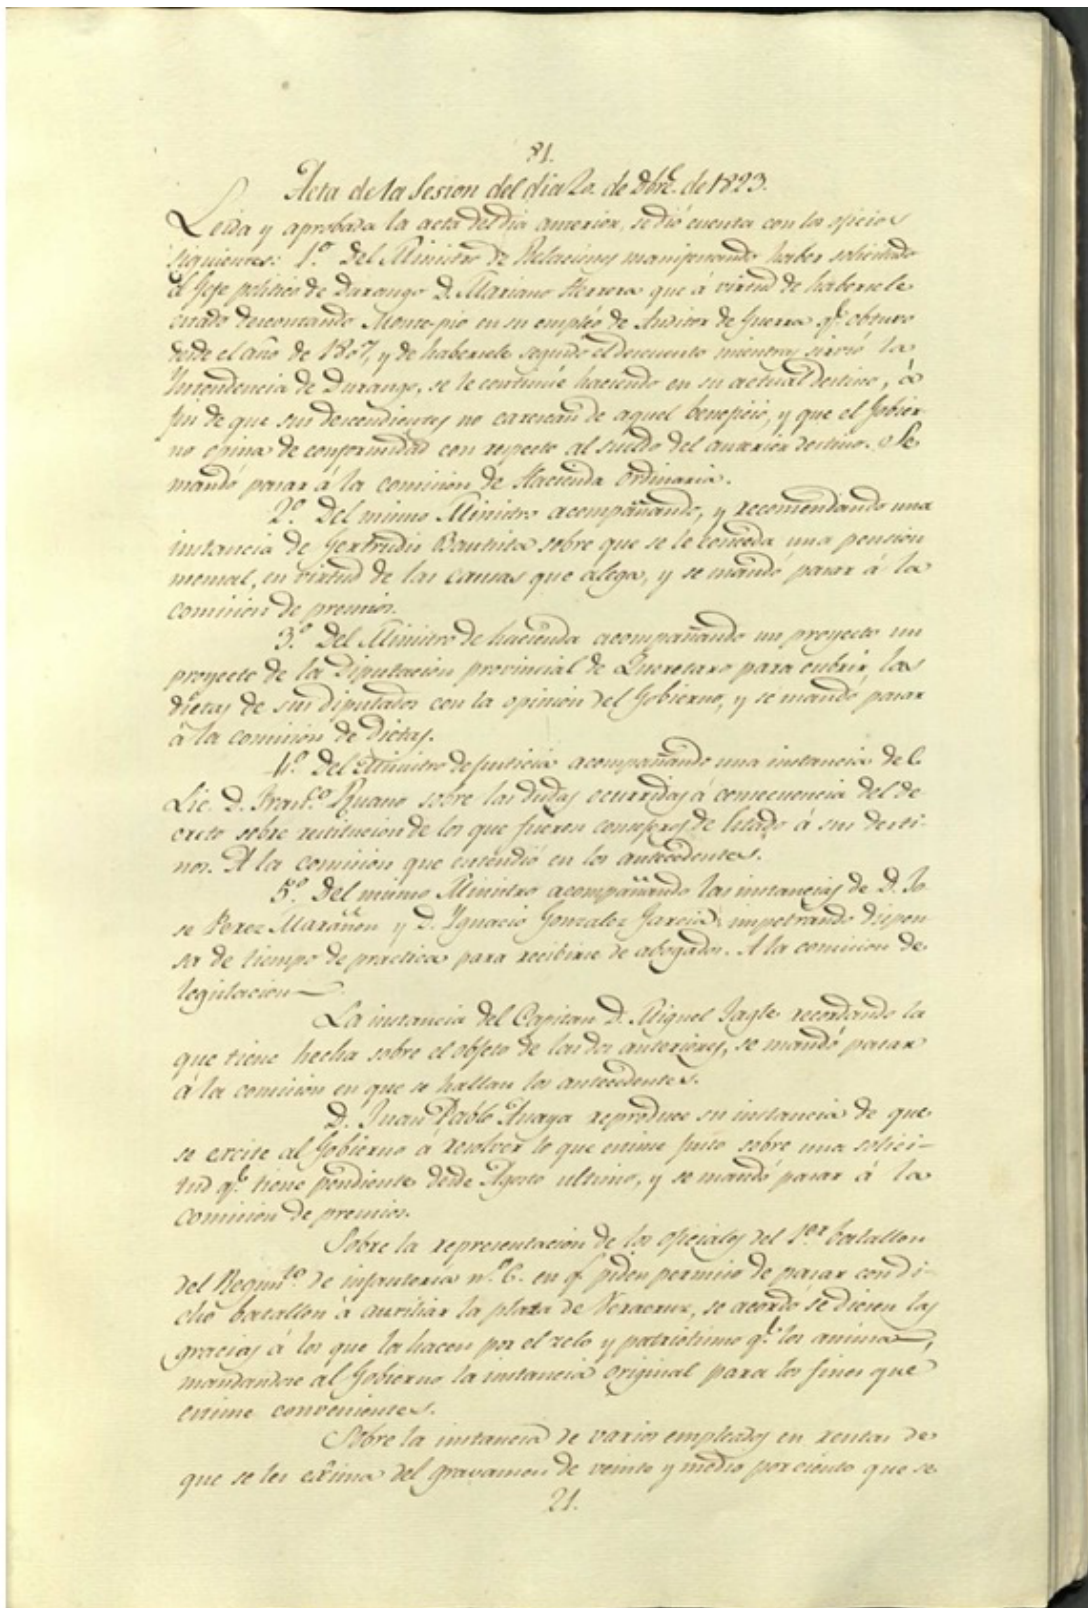 81.
Acta de la Sesion del dia 20. de 8bre. de 1823.
Leida y aprobada la acta del dia anterior, se dió cuenta con los oficios
siguientes: 1º. Del Ministro de Relaciones manifestando haber solicitado
el Gefe politico de Durango D. Mariano Herrera que á virtud de habersele
estado descontando Monte-pio en su empléo de Auditor de Guerra qe. obtuvo
desde el año de 1807, y de habersele seguido el descuento mientras sirvió la
Yntendencia de Durango, se le continúe haciendo en su actual destino, á
fin de que sus descendientes no carescan de aquel beneficio, y que el Gobier-
no opina de conformidad con respecto al sueldo del anterior destino. Se
mandó pasar á la comision de Hacienda ordinaria.
2º. Del mismo Ministro acompañando, y recomendando una
instancia de Gertrudis Bautista sobre que se le conceda una pension
mensal, en virtud de las causas que alega, y se mandó pasar á la
comision de premios.
3º. Del Ministro de hacienda acompañando un proyecto un
proyecto de la Diputacion provincial de Queretaro para cubrir las
dietas de sus diputados con la opinion del Gobierno, y se mandó pasar
á la comision de Dietas.
4º. Del Ministro de Justicia acompañando una instancia del
Lic. D. Franco. sobre las dudas ocurridas á consecuencia del de-
creto sobre restitucion de los que fueron consejeros de Estado á sus desti-
nos. A la comision que entendió en los antecedentes.
5º. Del mismo Ministro acompañando las instancias de D. Jo-
se Perez Marañon y D. Ygnacio Gonzalez Garcia, impetrando dispen-
sa de tiempo de práctica para recibirse de abogados. A la comision de
legislacion—
La instancia del Capitan D. Miguel Tagle recordando la
que tiene hecha sobre el objeto de las dos anteriores, se mandó pasar
á la comision en que se hallan los antecedentes.
D. Juan Pablo Anaya reproduce su instancia de que
se excite al Gobierno á resolver lo que estime justo sobre una solici-
tud qe. tiene pendiente desde Agosto ultimo, y se mandó pasar á la
comision de premios.
Sobre la representacion de los oficiales del 1er. batallon
del Regimto. de infanteria nº. 6. en qe piden permiso de pasar con di-
cho batallon á auxiliar la plaza de Veracruz, se acordó se dieran las
gracias á los que la hacen por el zelo y patriotismo qe. los anima—,
mandandose al Gobierno la instancia original para los fines que
estime convenientes.
Sobre la instancia de varios empleados en rentas de
que se les exima del gravamen de veinte y medio por ciento que se
21.